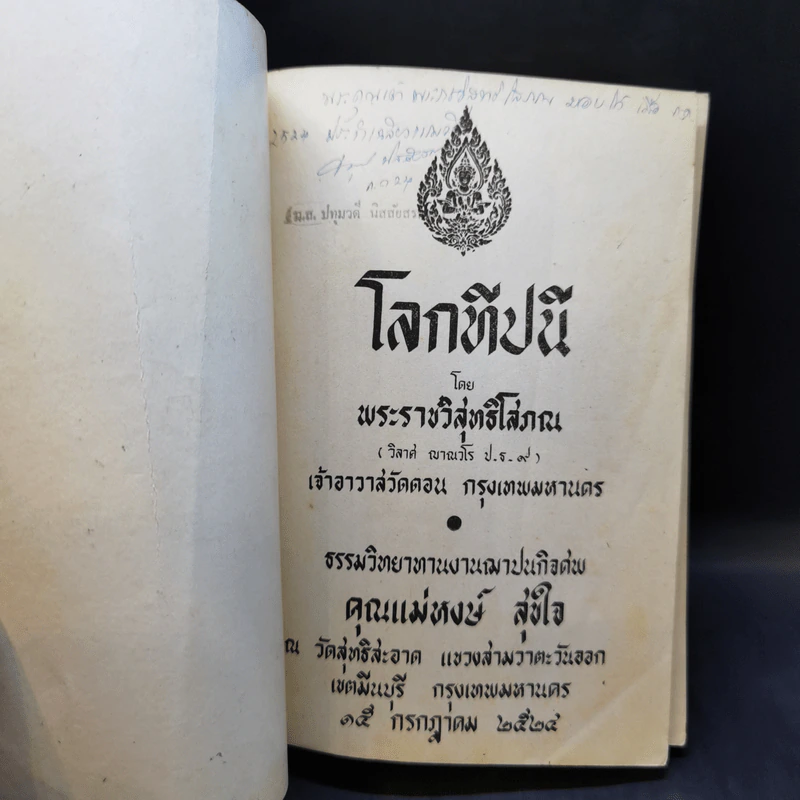 พระคุณเจ้า พระราชวิสุทธิโสภณ มอบให้ เมื่อ
ฌ.ส. ปทุมวดี นิลลัยสร
โลกทีปนี
โดย
พระราชวิสุทธิโสภณ
( วิลาศ ญาณวโร ป.ธ.๙ )
เจ้าอาวาสวัดดอน กรุงเทพมหานคร
ธรรมวิทยาทานงานฌาปนกิจศพ
คุณแม่หงษ์ สุขใจ
ณ วัดสุทธิสะอาด แขวงสามวาตะวันออก
เขตมีนบุรี กรุงเทพมหานคร
๑๕ กรกฎาคม ๒๕๒๔